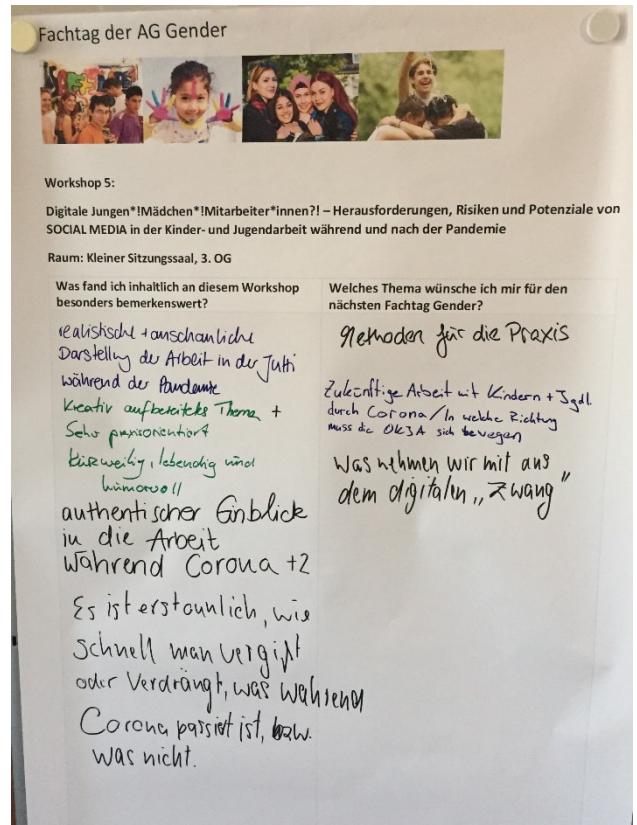 Fachtag der AG Gender
Workshop 5:
Digitale Jungen*!Mädchen*!Mitarbeiter*innen?! – Herausforderungen, Risiken und Potenziale von
SOCIAL MEDIA in der Kinder- und Jugendarbeit während und nach der Pandemie
Raum: Kleiner Sitzungssaal, 3. OG
Was fand ich inhaltlich an diesem Workshop
besonders bemerkenswert?
realistische + anschauliche
Darstellung der Arbeit in der Jutti
während der Pandemie
Kreativ aufbereitetes Thema +
Sehr praxisorientiert
Kurzweilig, lebendig und
humorvoll
authentischer Einblick
in die Arbeit
während Corona +2
Es ist erstaunlich, wie
schnell man vergißt
oder verdrängt, was während
Corona passiert ist, bzw.
was nicht.
Welches Thema wünsche ich mir für den
nächsten Fachtag Gender?
Methoden für die Praxis
Zukünftige Arbeit mit Kindern + Jgdl.
durch Corona / In welche Richtung
muss die OKJA sich bewegen
Was nehmen wir mit aus
dem digitalen „Zwang"